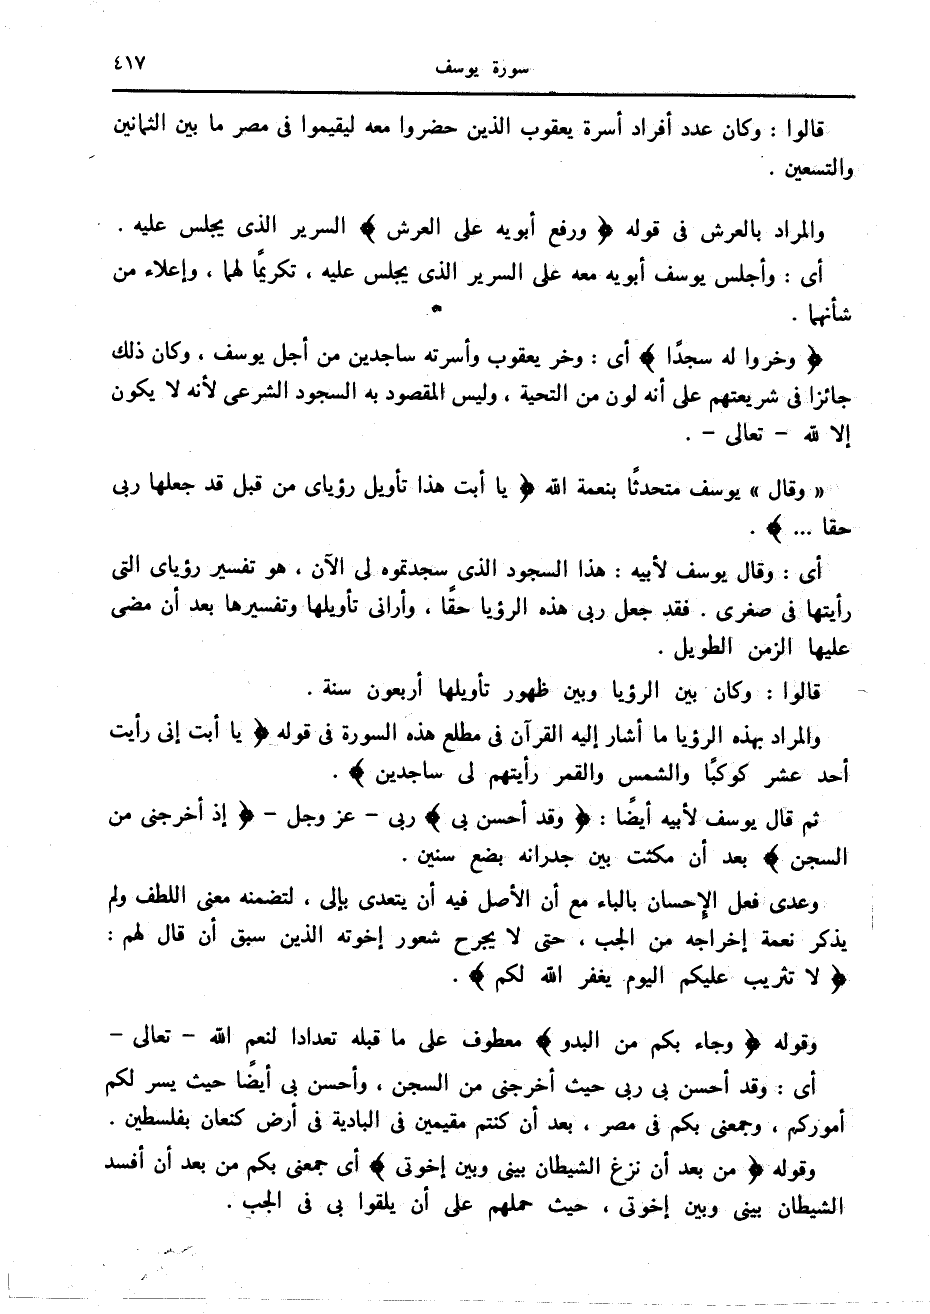 سورة يوسف ٤١٧
قالوا : وكان عدد أفراد أسرة يعقوب الذين حضروا معه ليقيموا فى مصر ما بين الثمانين
والتسعين .
والمراد بالعرش فى قوله ﴿ ورفع أبويه على العرش ﴾ السرير الذى يجلس عليه .
أى : وأجلس يوسف أبويه معه على السرير الذى يجلس عليه ، تكريمًا لهما ، وإعلاء من
شأنهما .
﴿ وخروا له سجدًا ﴾ أى : وخر يعقوب وأسرته ساجدين من أجل يوسف ، وكان ذلك
جائزا فى شريعتهم على أنه لون من التحية ، وليس المقصود به السجود الشرعى لأنه لا يكون
إلا لله – تعالى – .
« وقال » يوسف متحدثًا بنعمة الله ﴿ يا أبت هذا تأويل رؤياى من قبل قد جعلها ربى
حقا ... ﴾ .
أى : وقال يوسف لأبيه : هذا السجود الذى سجدتموه لى الآن ، هو تفسير رؤياى التى
رأيتها فى صغرى . فقد جعل ربى هذه الرؤيا حقًا ، وأرانى تأويلها وتفسيرها بعد أن مضى
عليها الزمن الطويل .
قالوا : وكان بين الرؤيا وبين ظهور تأويلها أربعون سنة .
والمراد بهذه الرؤيا ما أشار إليه القرآن فى مطلع هذه السورة فى قوله ﴿ يا أبت إنى رأيت
أحد عشر كوكبًا والشمس والقمر رأيتهم لى ساجدين ﴾ .
ثم قال يوسف لأبيه أيضًا : ﴿ وقد أحسن بى ﴾ ربى – عز وجل – ﴿ إذ أخرجنى من
السجن ﴾ بعد أن مكثت بين جدرانه بضع سنين .
وعدى فعل الإحسان بالباء مع أن الأصل فيه أن يتعدى بإلى ، لتضمنه معنى اللطف ولم
يذكر نعمة إخراجه من الجب ، حتى لا يجرح شعور إخوته الذين سبق أن قال لهم :
﴿ لا تثريب عليكم اليوم يغفر الله لكم ﴾ .
وقوله ﴿ وجاء بكم من البدو ﴾ معطوف على ما قبله تعدادا لنعم الله – تعالى –
أى : وقد أحسن بى ربى حيث أخرجنى من السجن ، وأحسن بى أيضًا حيث يسر لكم
أموركم ، وجمعنى بكم فى مصر ، بعد أن كنتم مقيمين فى البادية فى أرض كنعان بفلسطين .
وقوله ﴿ من بعد أن نزغ الشيطان بينى وبين إخوتى ﴾ أى جمعنى بكم من بعد أن أفسد
الشيطان بينى وبين إخوتى ، حيث حملهم على أن يلقوا بى فى الجب .